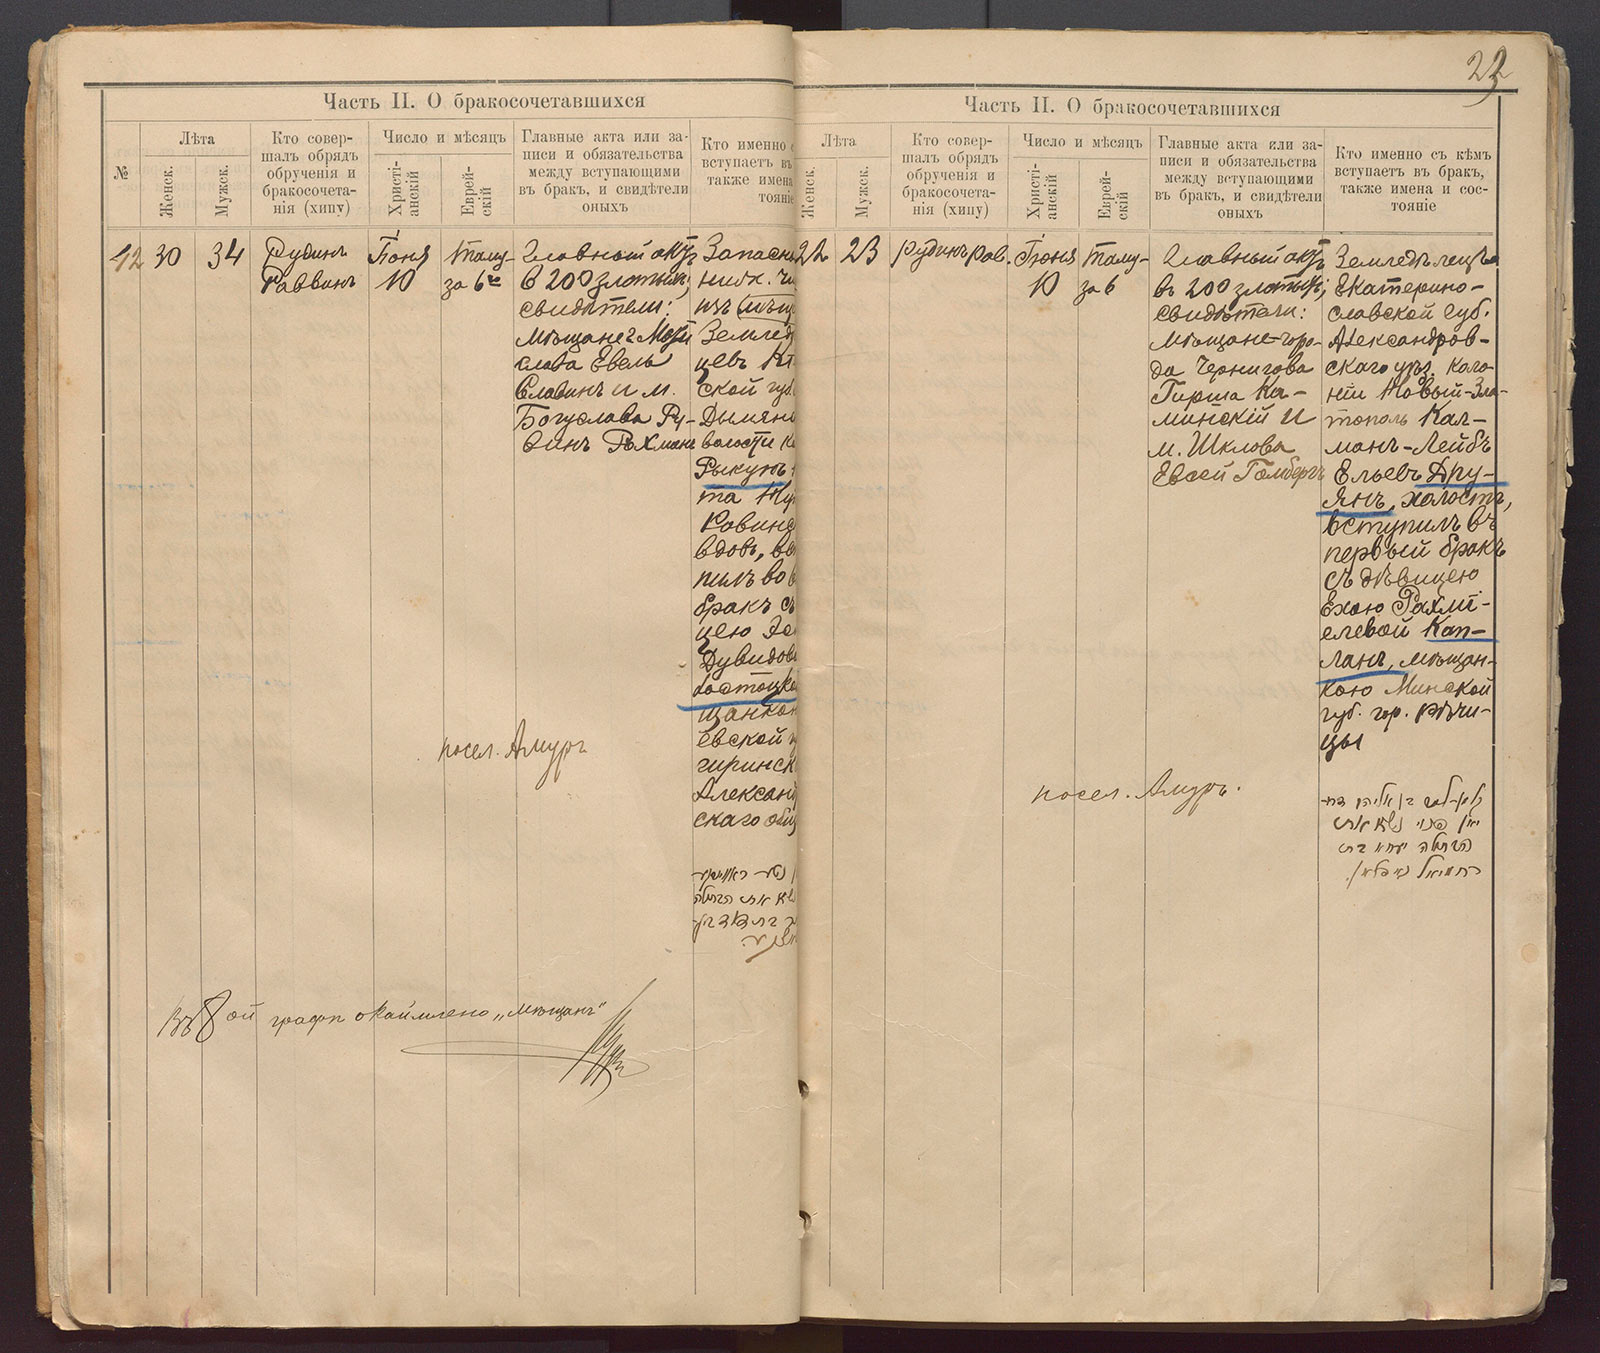 Часть II. О бракосочетавшихся
№
Лѣта
Женск.
Мужск.
Кто совер-
шалъ обрядъ
обрученія и
бракосочета-
нія (хипу)
Число и мѣсяцъ
Христі-
анскій
Еврей-
скій
Главные акта или за-
писи и обязательства
между вступающими
въ бракъ, и свидѣтели
оныхъ
Кто именно с
вступаетъ въ
также имена
тояніе
12
30
34
Рудинъ
Раввинъ
Іюня
10
Таму-
за 6го
Главный актъ
в 200 злотыхъ;
свидѣтели:
Мѣщане г. Мсти
слава Евель
Славинъ и м.
Богуслава Ру-
винъ Рахманъ
Запасны
нижн. чи
изъ мѣщ
Землед
цевъ
ской губ.
Дымян
волости
Рыкунъ
та
Рабин
вдов, вс
пилъ во в
бракъ съ
цею
Дувидов
щанкою
евской г
гиринск
Алексан
скаго общ
посел. Амуръ
Въ 8ой графѣ окаймлено „мѣщанъ“
23
Часть II. О бракосочетавшихся
Лѣта
Женск.
Мужск.
Кто совер-
шалъ обрядъ
обрученія и
бракосочета-
нія (хипу)
Число и мѣсяцъ
Христі-
анскій
Еврей-
скій
Главные акта или за-
писи и обязательства
между вступающими
въ бракъ, и свидѣтели
оныхъ
Кто именно съ кѣмъ
вступаетъ въ бракъ,
также имена и сос-
тояніе
22
23
Рудинъ Рав.
Іюня
10
Таму-
за 6
Главный актъ
въ 200 злотыхъ;
свидѣтели:
Мѣщане горо-
да Чернигова
Гирша Ка-
минскій и
м. Шклова
Евсей Гомбергъ
Земледѣлецъ
Екатерино-
славской губ.
Александров-
скаго уѣз. коло-
ніи Новый-Зла-
тополь Кал-
манъ-Лейбъ
Ельевъ Дру-
янъ, холостъ,
вступилъ въ
первый бракъ
съ дѣвицею
Ехою Рахмі-
елевой Кап-
ланъ, мѣщан-
кою Минской
губ. гор. Рѣчи-
цы
посел. Амуръ.